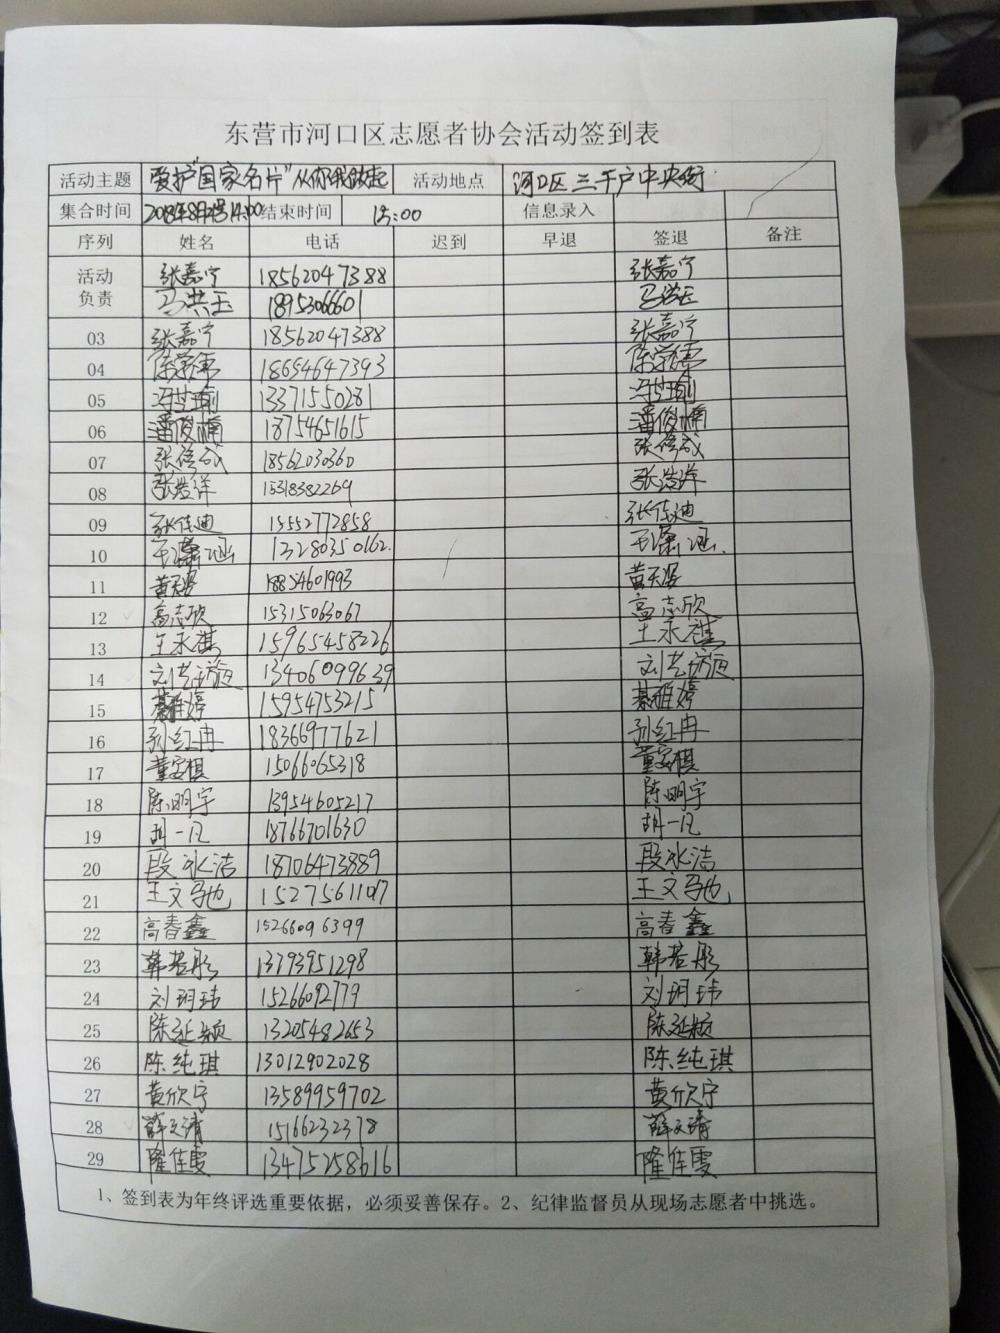 东营市河口区志愿者协会活动签到表
活动主题 爱护"国家名片"从你我做起 活动地点 河口区三千户中央街
集合时间 2018年8月2号14:00 结束时间 15:00 信息录入
序列 姓名 电话 迟到 早退 签退 备注
活动负责 张嘉宁 18562047388 张嘉宁
马洪玉 18953066601 马洪玉
03 张嘉宁 18562047388 张嘉宁
04 18654647393
05 13371550281
06 潘俊楠 18754651615 潘俊楠
07 18562030360
08 张浩洋 15318382269 张浩洋
09 张佳迪 15552772858 张佳迪
10 王潇涵 13280350162. 王潇涵.
11 18854601993
12 高志欣 15315063067 高志欣
13 王永祺 15965458226 王永祺
14 13406099639
15 綦雅婷 15954753215 綦雅婷
16 孙红冉 18366977621 孙红冉
17 董安棋 15066065318 董安棋
18 陈明宇 13954605217 陈明宇
19 胡一凡 18766701630 胡一凡
20 段冰洁 18706473889 段冰洁
21 王文驰 15275611107 王文驰
22 高春鑫 15266096399 高春鑫
23 韩若彤 13793951298 韩若彤
24 刘玥玮 15266092779 刘玥玮
25 陈延颖 13205482653 陈延颖
26 陈纯琪 13012902028 陈纯琪
27 黄欣宁 13589959702 黄欣宁
28 薛文靖 15166232378 薛文靖
29 隆佳雯 13475258616 隆佳雯
1、签到表为年终评选重要依据，必须妥善保存。2、纪律监督员从现场志愿者中挑选。